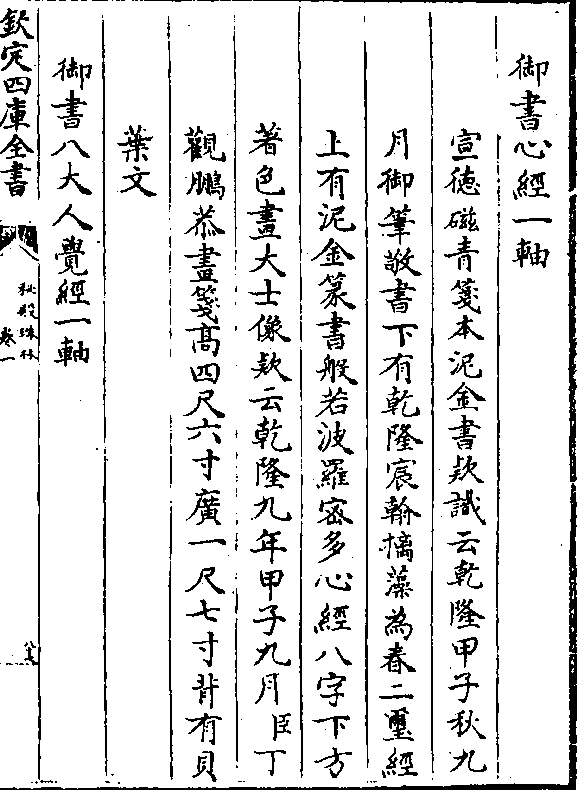 御書心經一軸
宣徳磁青箋本泥金書欵識云乾隆甲子秋九
月御筆敬書下有乾隆宸翰摛藻為春二璽經
上有泥金篆書般若波羅宻多心經八字下方
著色畫大士像欵云乾隆九年甲子九月臣丁
觀鵬恭畫箋髙四尺六寸廣一尺七寸背有貝
葉文
御書八大人覺經一軸
欽定四庫全書
秘殿珠林
卷一